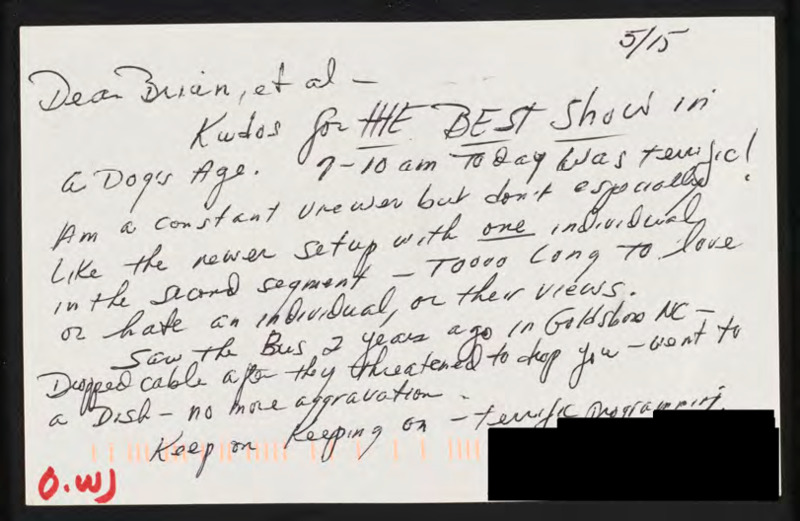 5/15
Dear Brian, et al —
Kudos for THE BEST Show in
a Dog's Age. 7-10 am Today was terrific!
Am a constant viewer but don't especially
Like the newer setup with one individual
in the second segment — Toooo Long To love
or hate an individual, or their views.
Saw the Bus 2 years ago in Goldsboro NC —
Dropped cable after they threatened to drop you — went to
a Dish — no more aggravation.
Keep on keeping on — terrific programming.
O.WJ